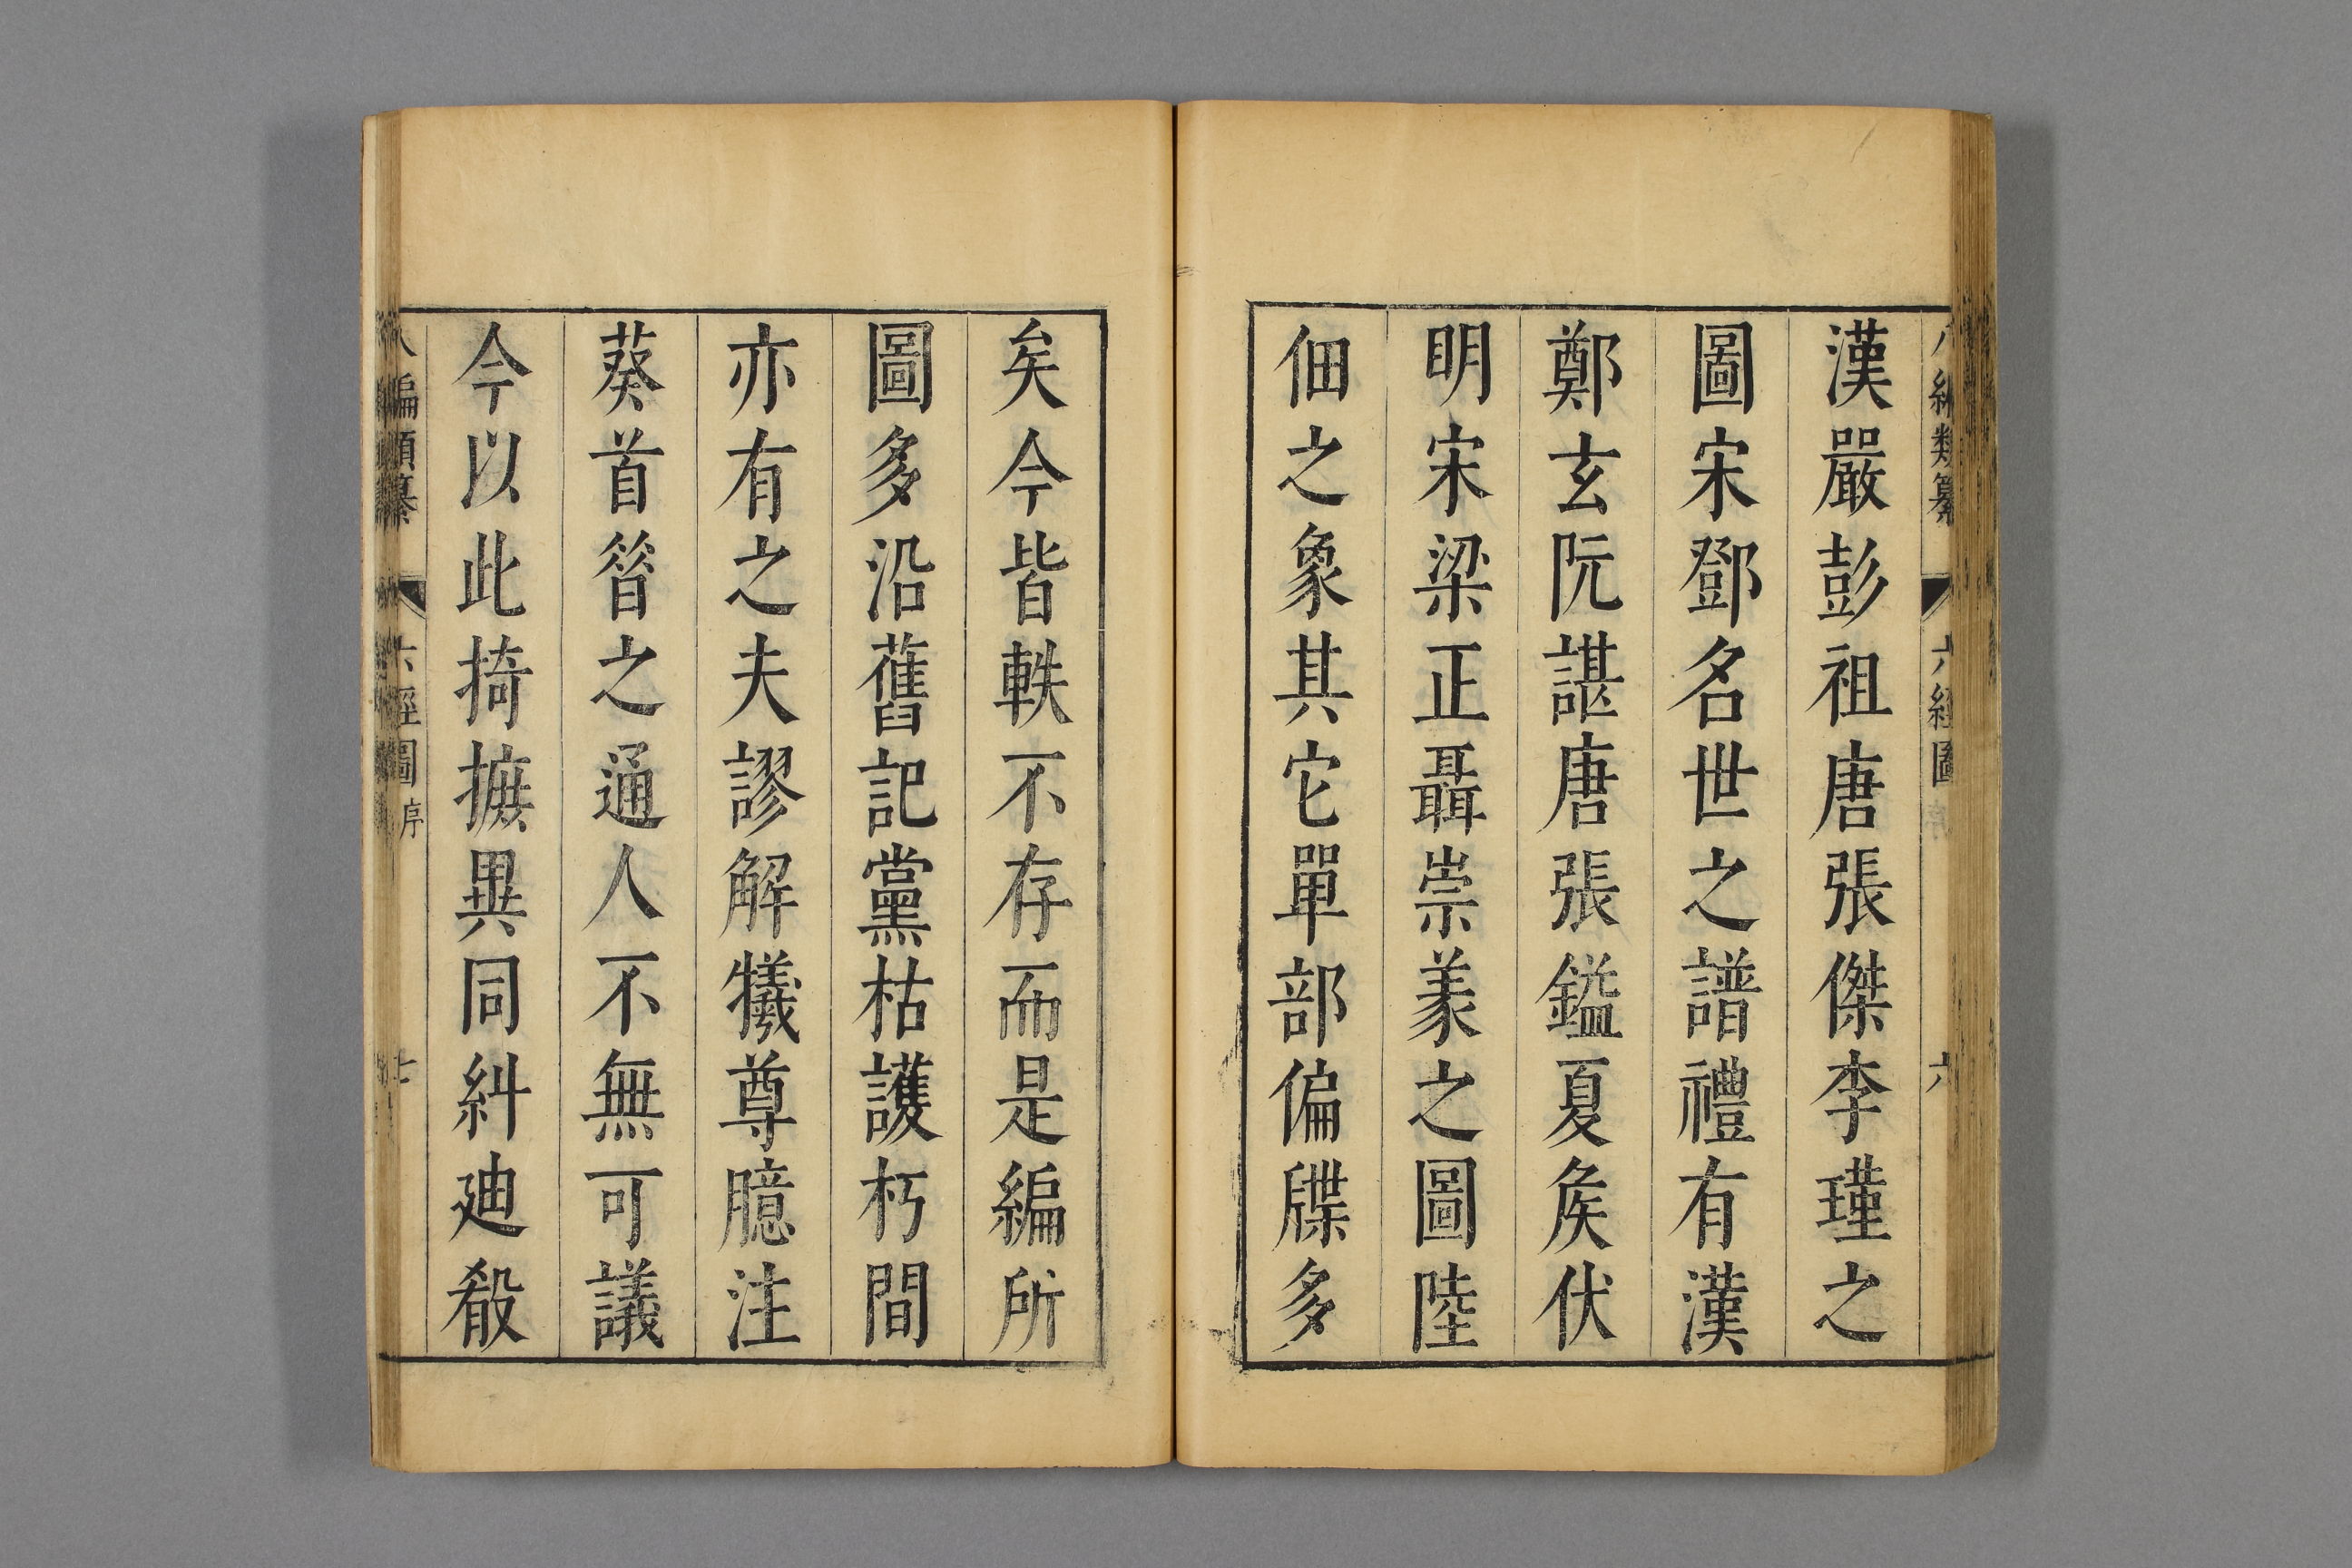 八編類纂 六經圖 序 六
漢嚴彭祖唐張傑李瑾之
圖宋鄧名世之譜禮有漢
鄭玄阮諶唐張鎰夏矦伏
明宋梁正聶崇羕之圖陸
佃之象其它單部偏牒多
矣今皆軼不存而是編所
圖多沿舊記黨枯護朽間
亦有之夫謬解犧尊臆注
葵首晉之通人不無可議
今以此掎摭異同糾廸殽
八編類纂 六經圖 序 七